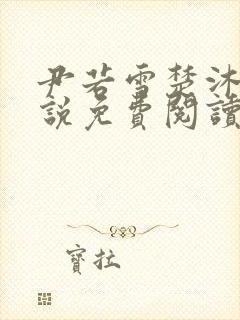 尹若雪楚沐
說免費閱讀
寶拉